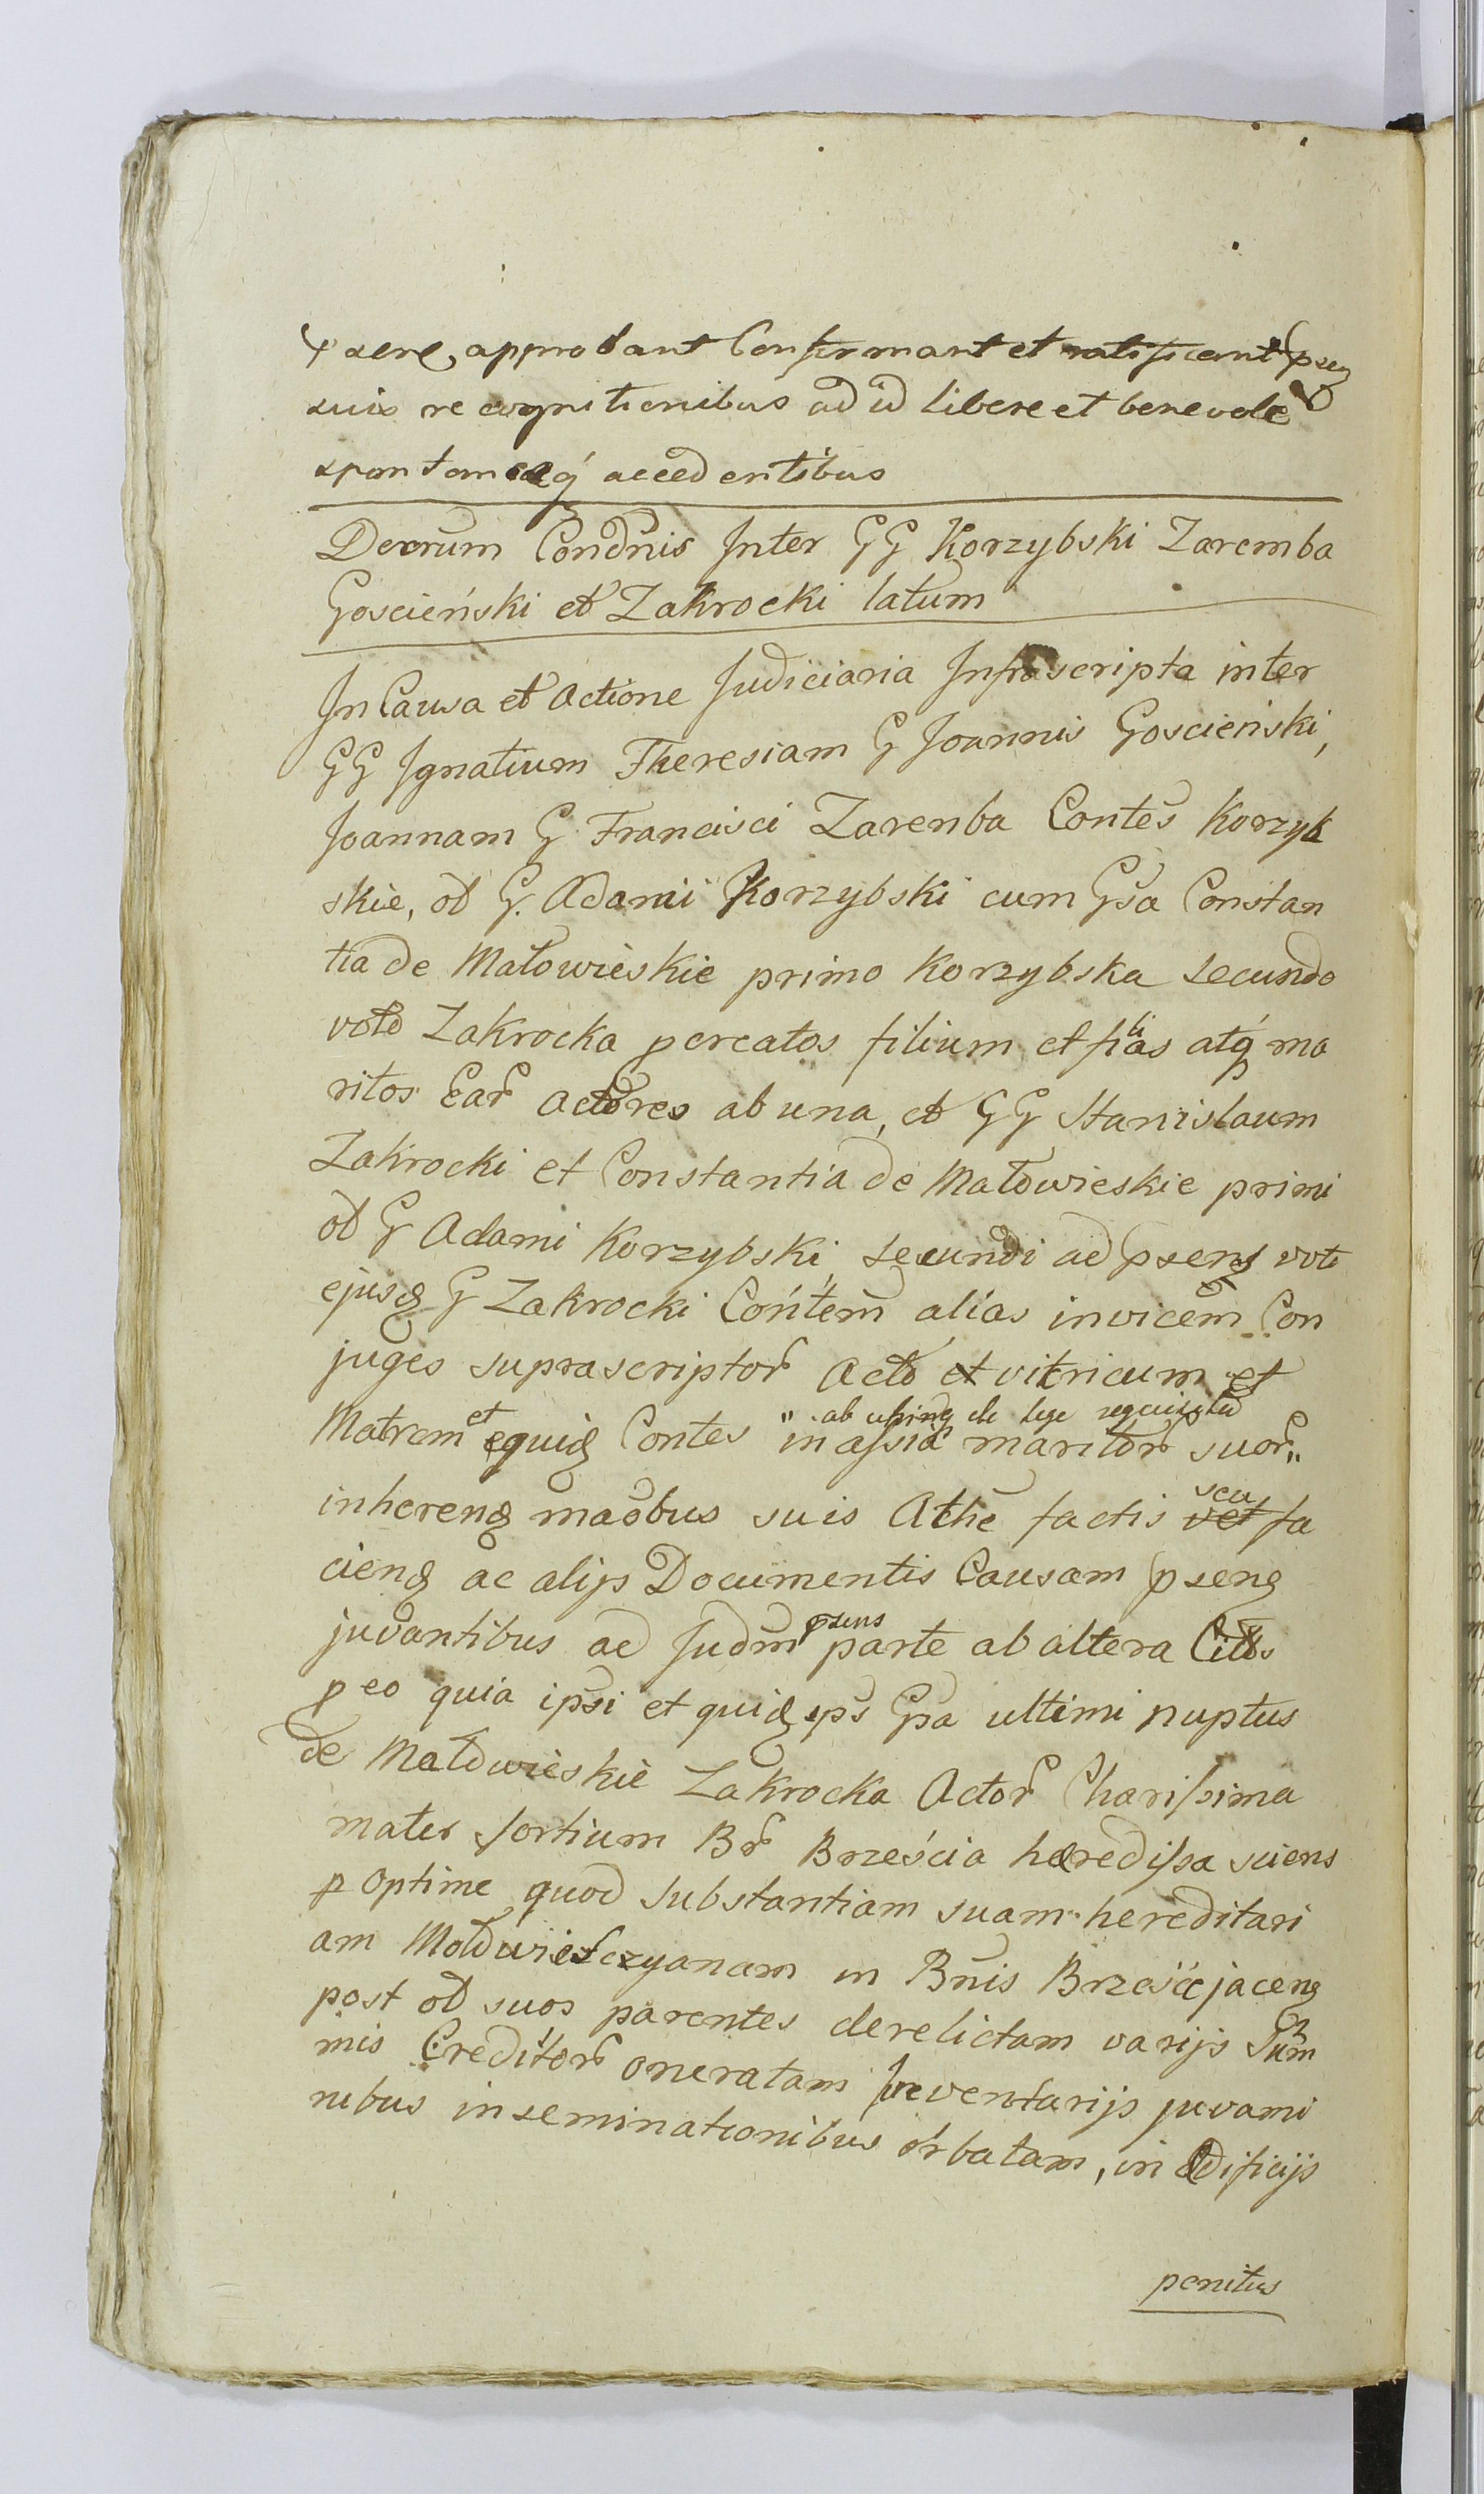 sere, approbant Confirmant et ratificant pseng
suis recognitionibus ad id libere et benevole
spontaneeq́ accedentibus
Decrum Condnis Inter GG Korzybski Zaremba
Goscieński et Zakrocki latum
In Causa et Actione Judiciaria Infrascripta inter
GG Ignatium Theresiam G Joannis Goscieński,
Joannam G Francisci Zaremba Contes Korzyb
skie, ol G. Adami Korzybski cum Gsa Constan
tia de Małowieskie primo Korzybska secundo
voto Zakrocka pcreatos filium et filias atq́ ma
ritos Ear Actores ab una, et GG Stanislaum
Zakrocki et Constantia de Małowieskie primi
ol G Adami Korzybski secundi ad pseng voti
ejusd G Zakrocki Contem alias invicem Con
juges suprascriptor Acto et vitricum et
Matrem et equid Contes "in assia maritor suor"
ab utrinq de lege requisita
inhereng maobus suis Athe factis vel seu fa
cieng ac alijs Documentis Causam pseng
juvantibus ad Judm psens parte ab altera Citos
p eo quia ipsi et quid yps Gsa ultimi nuptus
de Małowieskie Zakrocka Actor Charissima
mater sortium Br Brześcia heredissa sciens
p optime quod substantiam suam hereditari
am Małowiesczyanam in Bnis Brzeście jaceng
post ol suos parentes derelictam varijs Sum
mis Creditor oneratam Inventarijs juvami
nibus inseminationibus orbatam, in Ædificijs
penitus